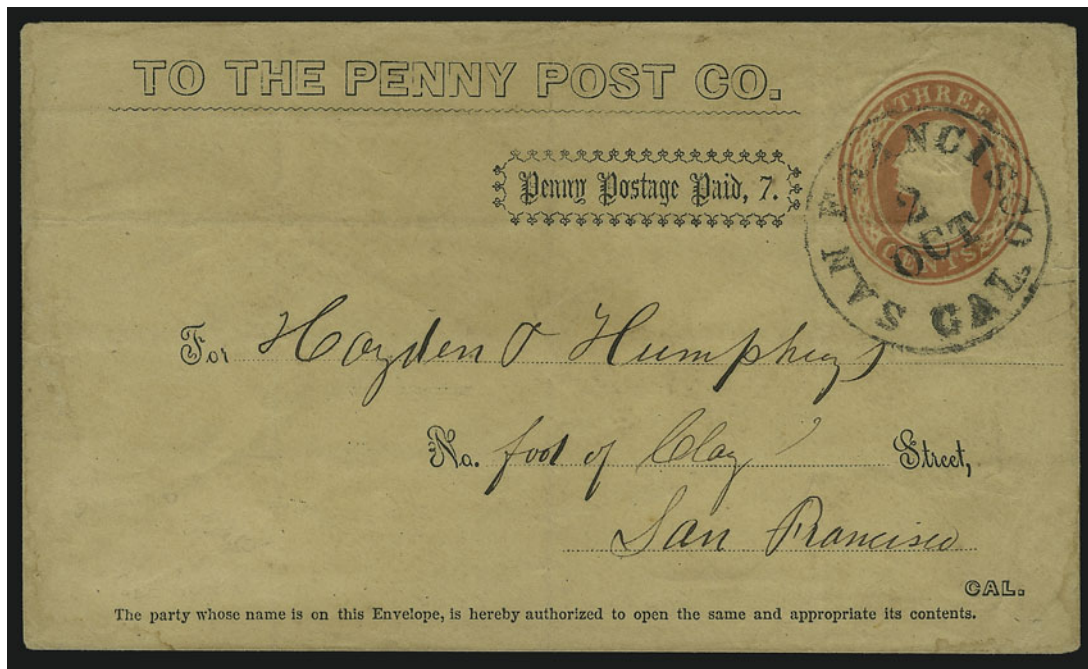 TO THE PENNY POST CO.
THREE
CENTS
SAN FRANCISCO CAL.
2
OCT
Penny Postage Paid, 7.
For Hayden & Humphreys
No. foot of Clay Street,
San Francisco
CAL.
The party whose name is on this Envelope, is hereby authorized to open the same and appropriate its contents.